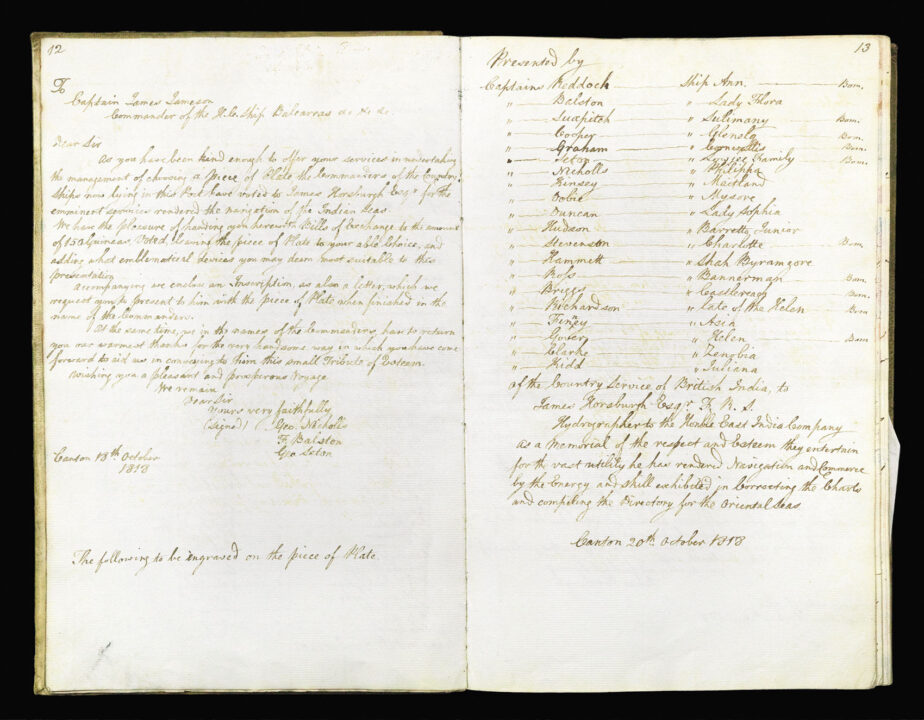 12
To
Captain James Jameson
Commander of the H.C. Ship Balcarras &c. &c. &c.
Dear Sir
As you have been kind enough to offer your services in undertaking
the management of choosing a piece of Plate the Commanders of the Country
Ships now lying in this Port have voted to James Horsburgh Esqr. for the
emminent services rendered the navigation of the Indian Seas.
We have the pleasure of handing you herewith Bills of Exchange to the amount
of 150 Guineas Voted, leaving the piece of Plate to your able Choice, and
adding what emblematical devices you may deem most suitable to this
presentation
Accompanying we enclose an Inscription, as also a letter which we
request you to present to him with the piece of Plate when finished in the
name of the Commanders.
At the same time, we in the names of the Commanders, have to return
you our warmest thanks for the very handsome way in which you have come
forward to aid us in conveying to him this small Tribute of Esteem.
Wishing you a pleasant and prosperous Voyage
We remain
Dear Sir
Yours very faithfully
(Signed) Geo. Nicholls
F. Balston
Geo Seton
Canton 18th. October
1818
The following to be engraved on the piece of Plate
13
Presented by
Captains Reddoch Ship Ann. Bom.
" Balston " Lady Flora
" " Sulimany Bom.
" Cooper " Glenelg Bom.
" Graham " Cornwallis Bom.
" Seton " Family Bom.
" Nicholls " Philippa
" Kinsey " Maitland
" Dobie " Mysore
" Duncan " Lady Sophia
" Hudson " Barretto Junior
" Stevenson " Charlotte Bom
" Hammett " Shah Byramgore
" Ross " Bannerman Bom.
" Briggs " Castlereagh Bom.
" Richardson " late of the Helen Bom
" Finney " Asia
" Gover " Helen Bom
" Clarke " Zenobia
" Kidd " Juliana
of the Country Service of British India, to
James Horsburgh Esqr. F. R. S.
Hydrographer to the Honble East India Company
as a Memorial of the respect and Esteem they entertain
for the vast utility he has rendered Navigation and Commerce
by the Energy and skill exhibited in Correcting the Charts
and compiling the Directory for the Oriental Seas
Canton 20th. October 1818